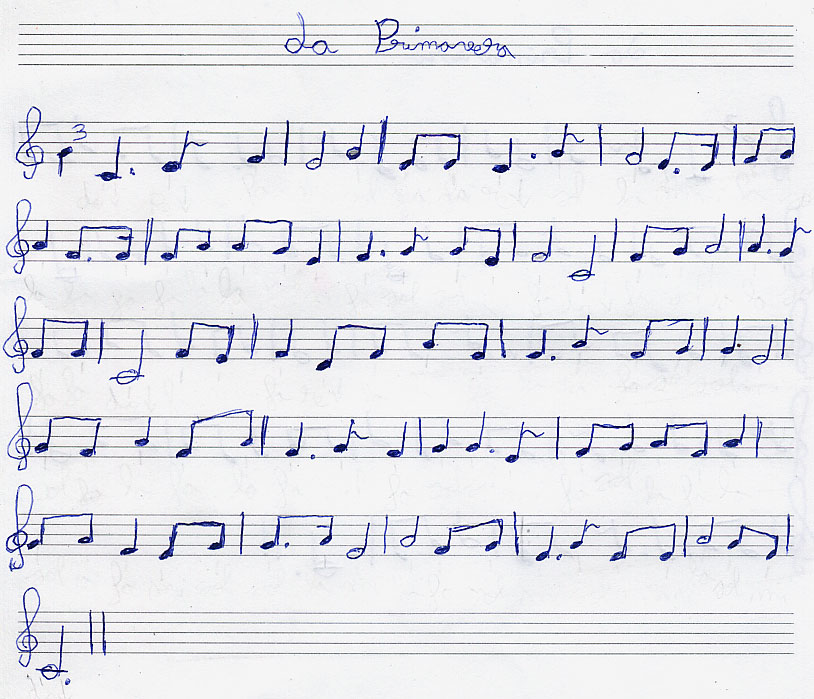 La Primavera
3